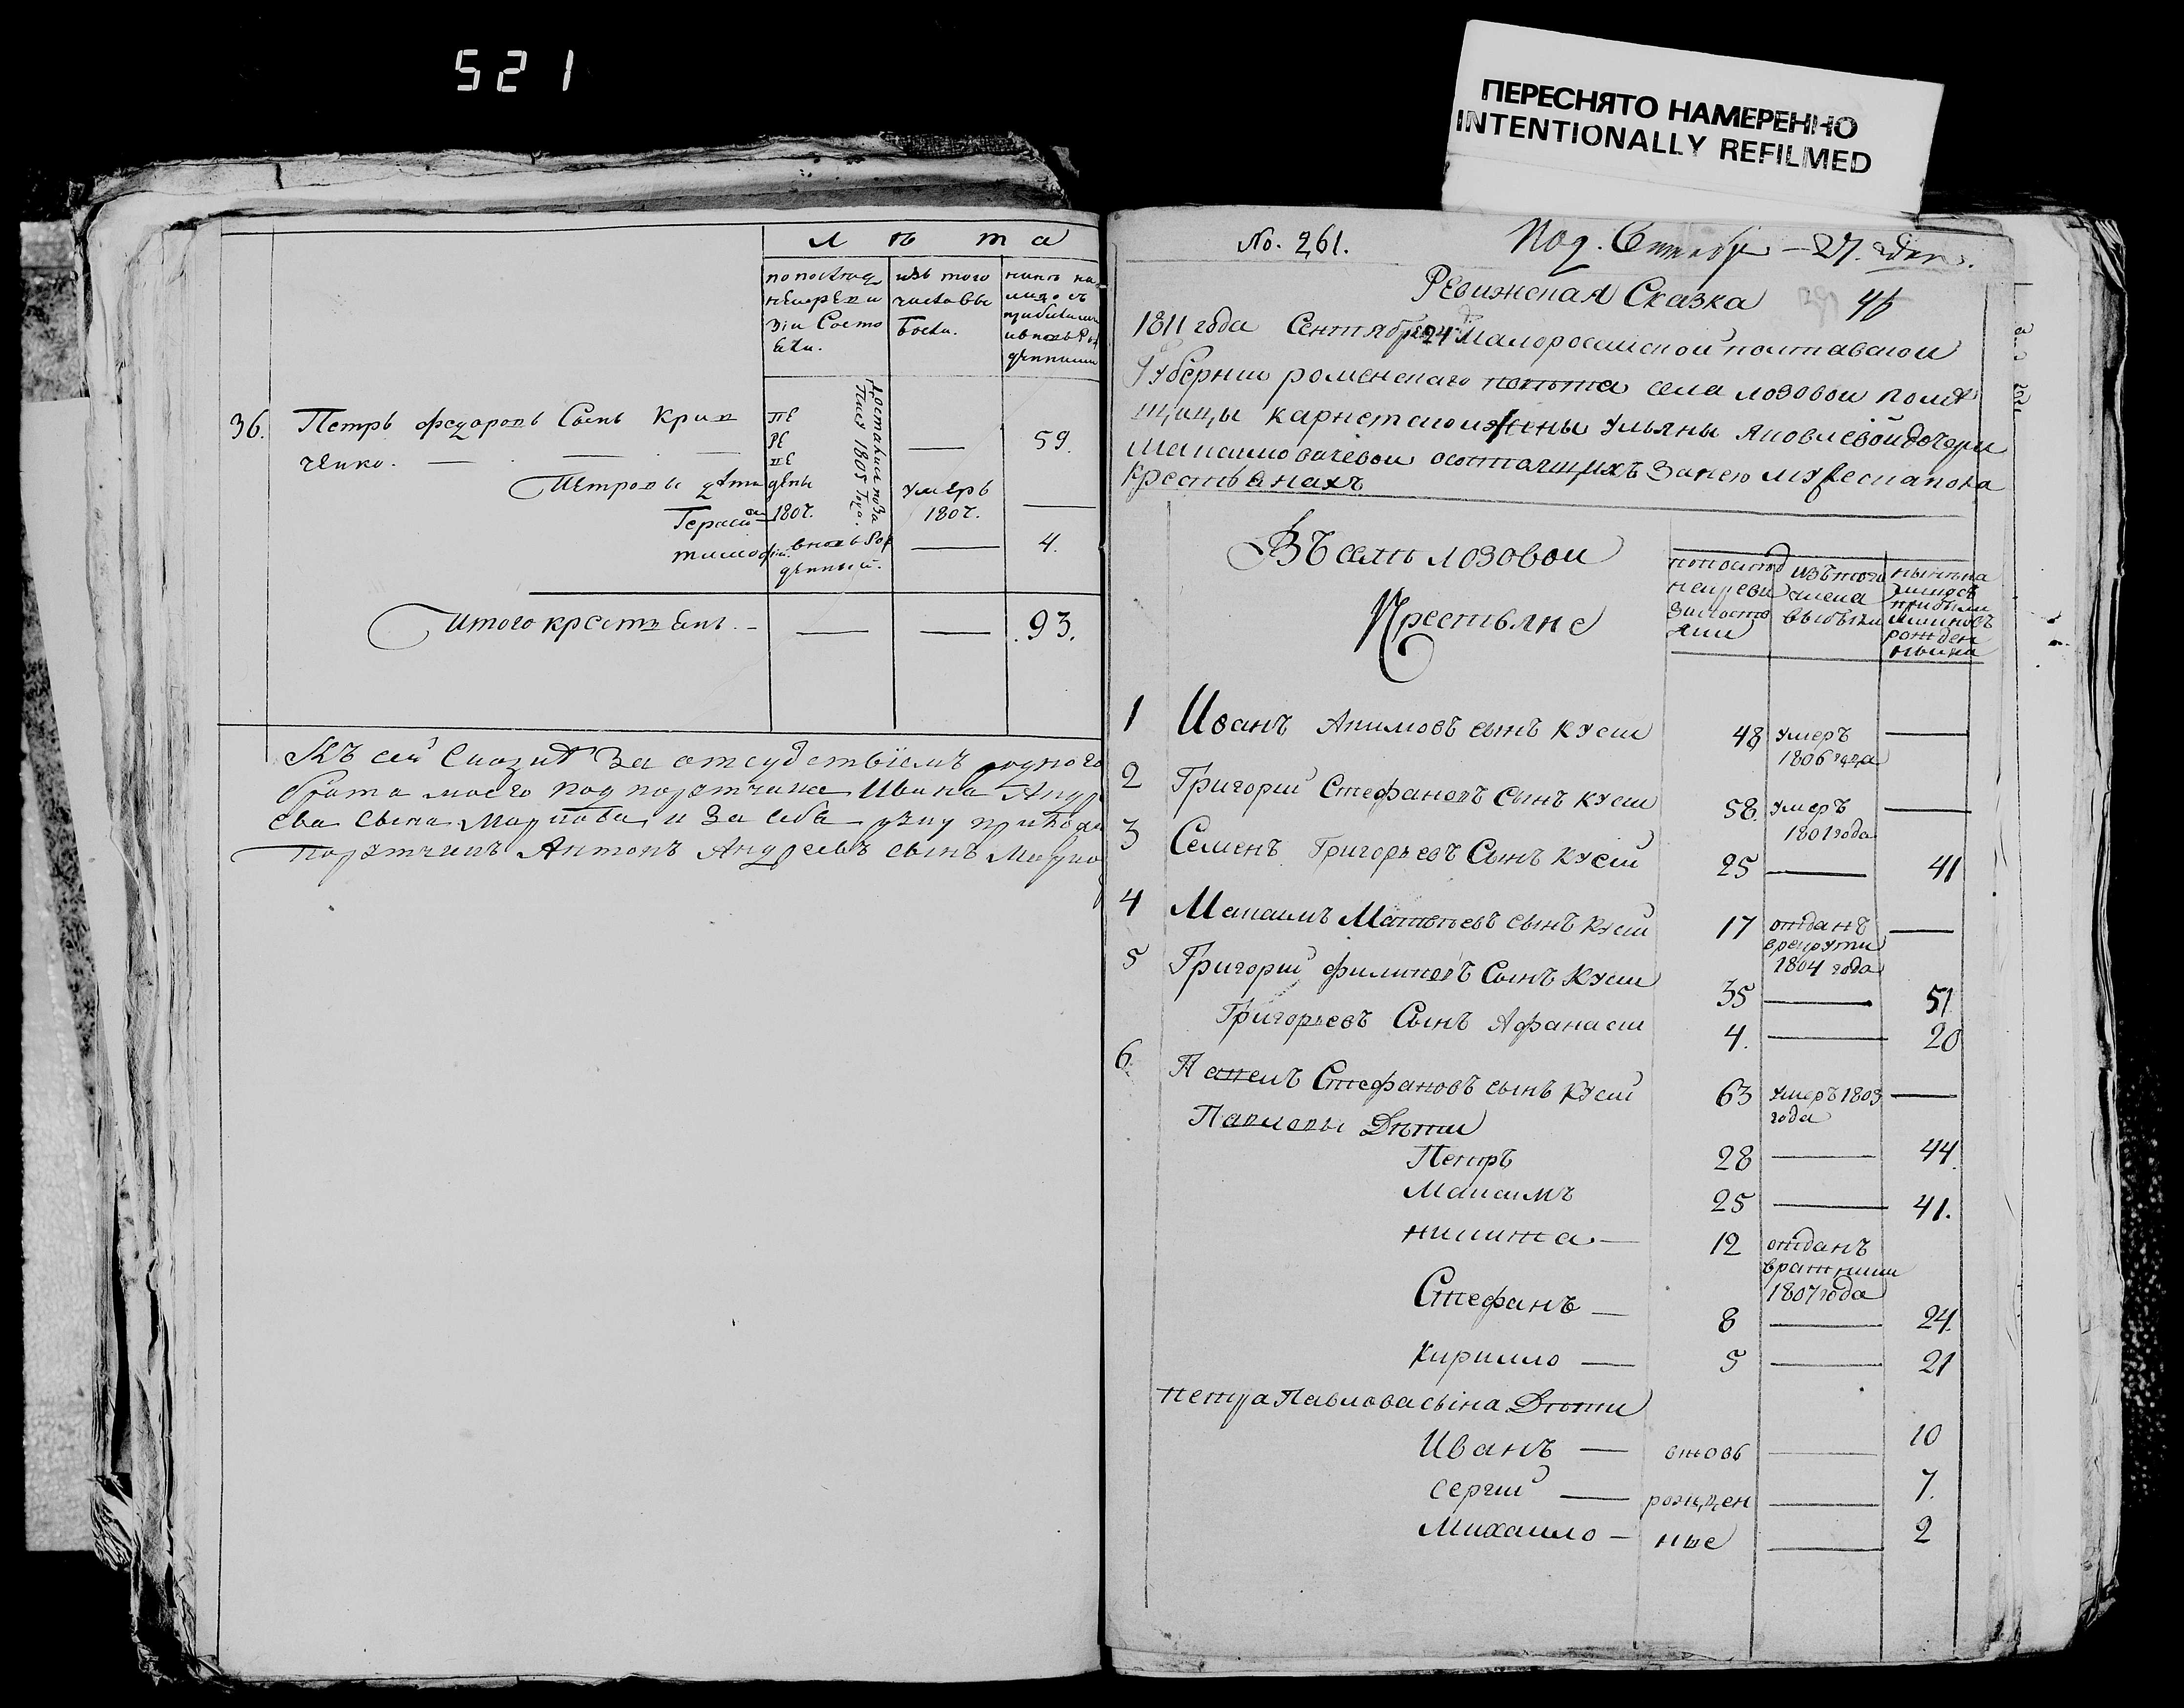 521
ПЕРЕСНЯТО НАМЕРЕННО
INTENTIONALLY REFILMED
лѣта
по послед
ней ревизіи состояли.
изъ того
числа вы
было.
36. Петръ федоровъ Сынъ Крив
ченко.
пе
ре
ве
дены
Доставшей поза
1805 Года.
59.
Петровы дѣти
Гераси 1807. умеръ 1807.
тимофѣй вновь рож
денный. 4.
Итого крестьянъ 93.
Къ сей Сказки За отсудствіемъ роднаго
брата моего подпоручика Ивана Андре
ева сына Маркова и За себя руку прикла
порутчикъ Антонъ Андреевъ сынъ Марко
No. 261. Под. Сентябр 27. дня.
Ревижская Сказка
1811 года Сентября 24 Малоросийской полтавской
Губерніи роменскаго повѣта села лозовой помѣ
щицы карнетской жены Ульяны Яковлевой дочери
состоящихъ Занею мужеска пола
крестьянахъ
Въ селѣ лозовой
Крестьяне
по послед
ней реви
зіи состо
яли
изъ того
числа
выбыли
нынѣ на
лицо съ
прибыли
ми и новъ
рожден
ными
1 Иванъ Акимовъ сынъ кусій 48 умеръ
1806 года
2 Григорій Стефановъ Сынъ кусій 58. умеръ
1801 года
3 Семенъ Григорьевъ Сынъ кусій 25 41
4 Максимъ Матвѣевъ сынъ кусій 17 отданъ
врекруты
1804 года
5 Григорій филиповъ Сынъ кусій 35 51
Григорьевъ Сынъ Афанасій 4. 20
6 Павелъ Стефановъ сынъ кусій 63 умеръ 1803
года
Павловы Дѣти
Петръ 28 44
Максимъ 25 41.
никита 12 отданъ
вратники
1807 года
Стефанъ 8 24.
кирилло 5 21
петра Павлова сына Дѣти
Иванъ вновь 10
сергій рожден 7.
Михаило ные 2